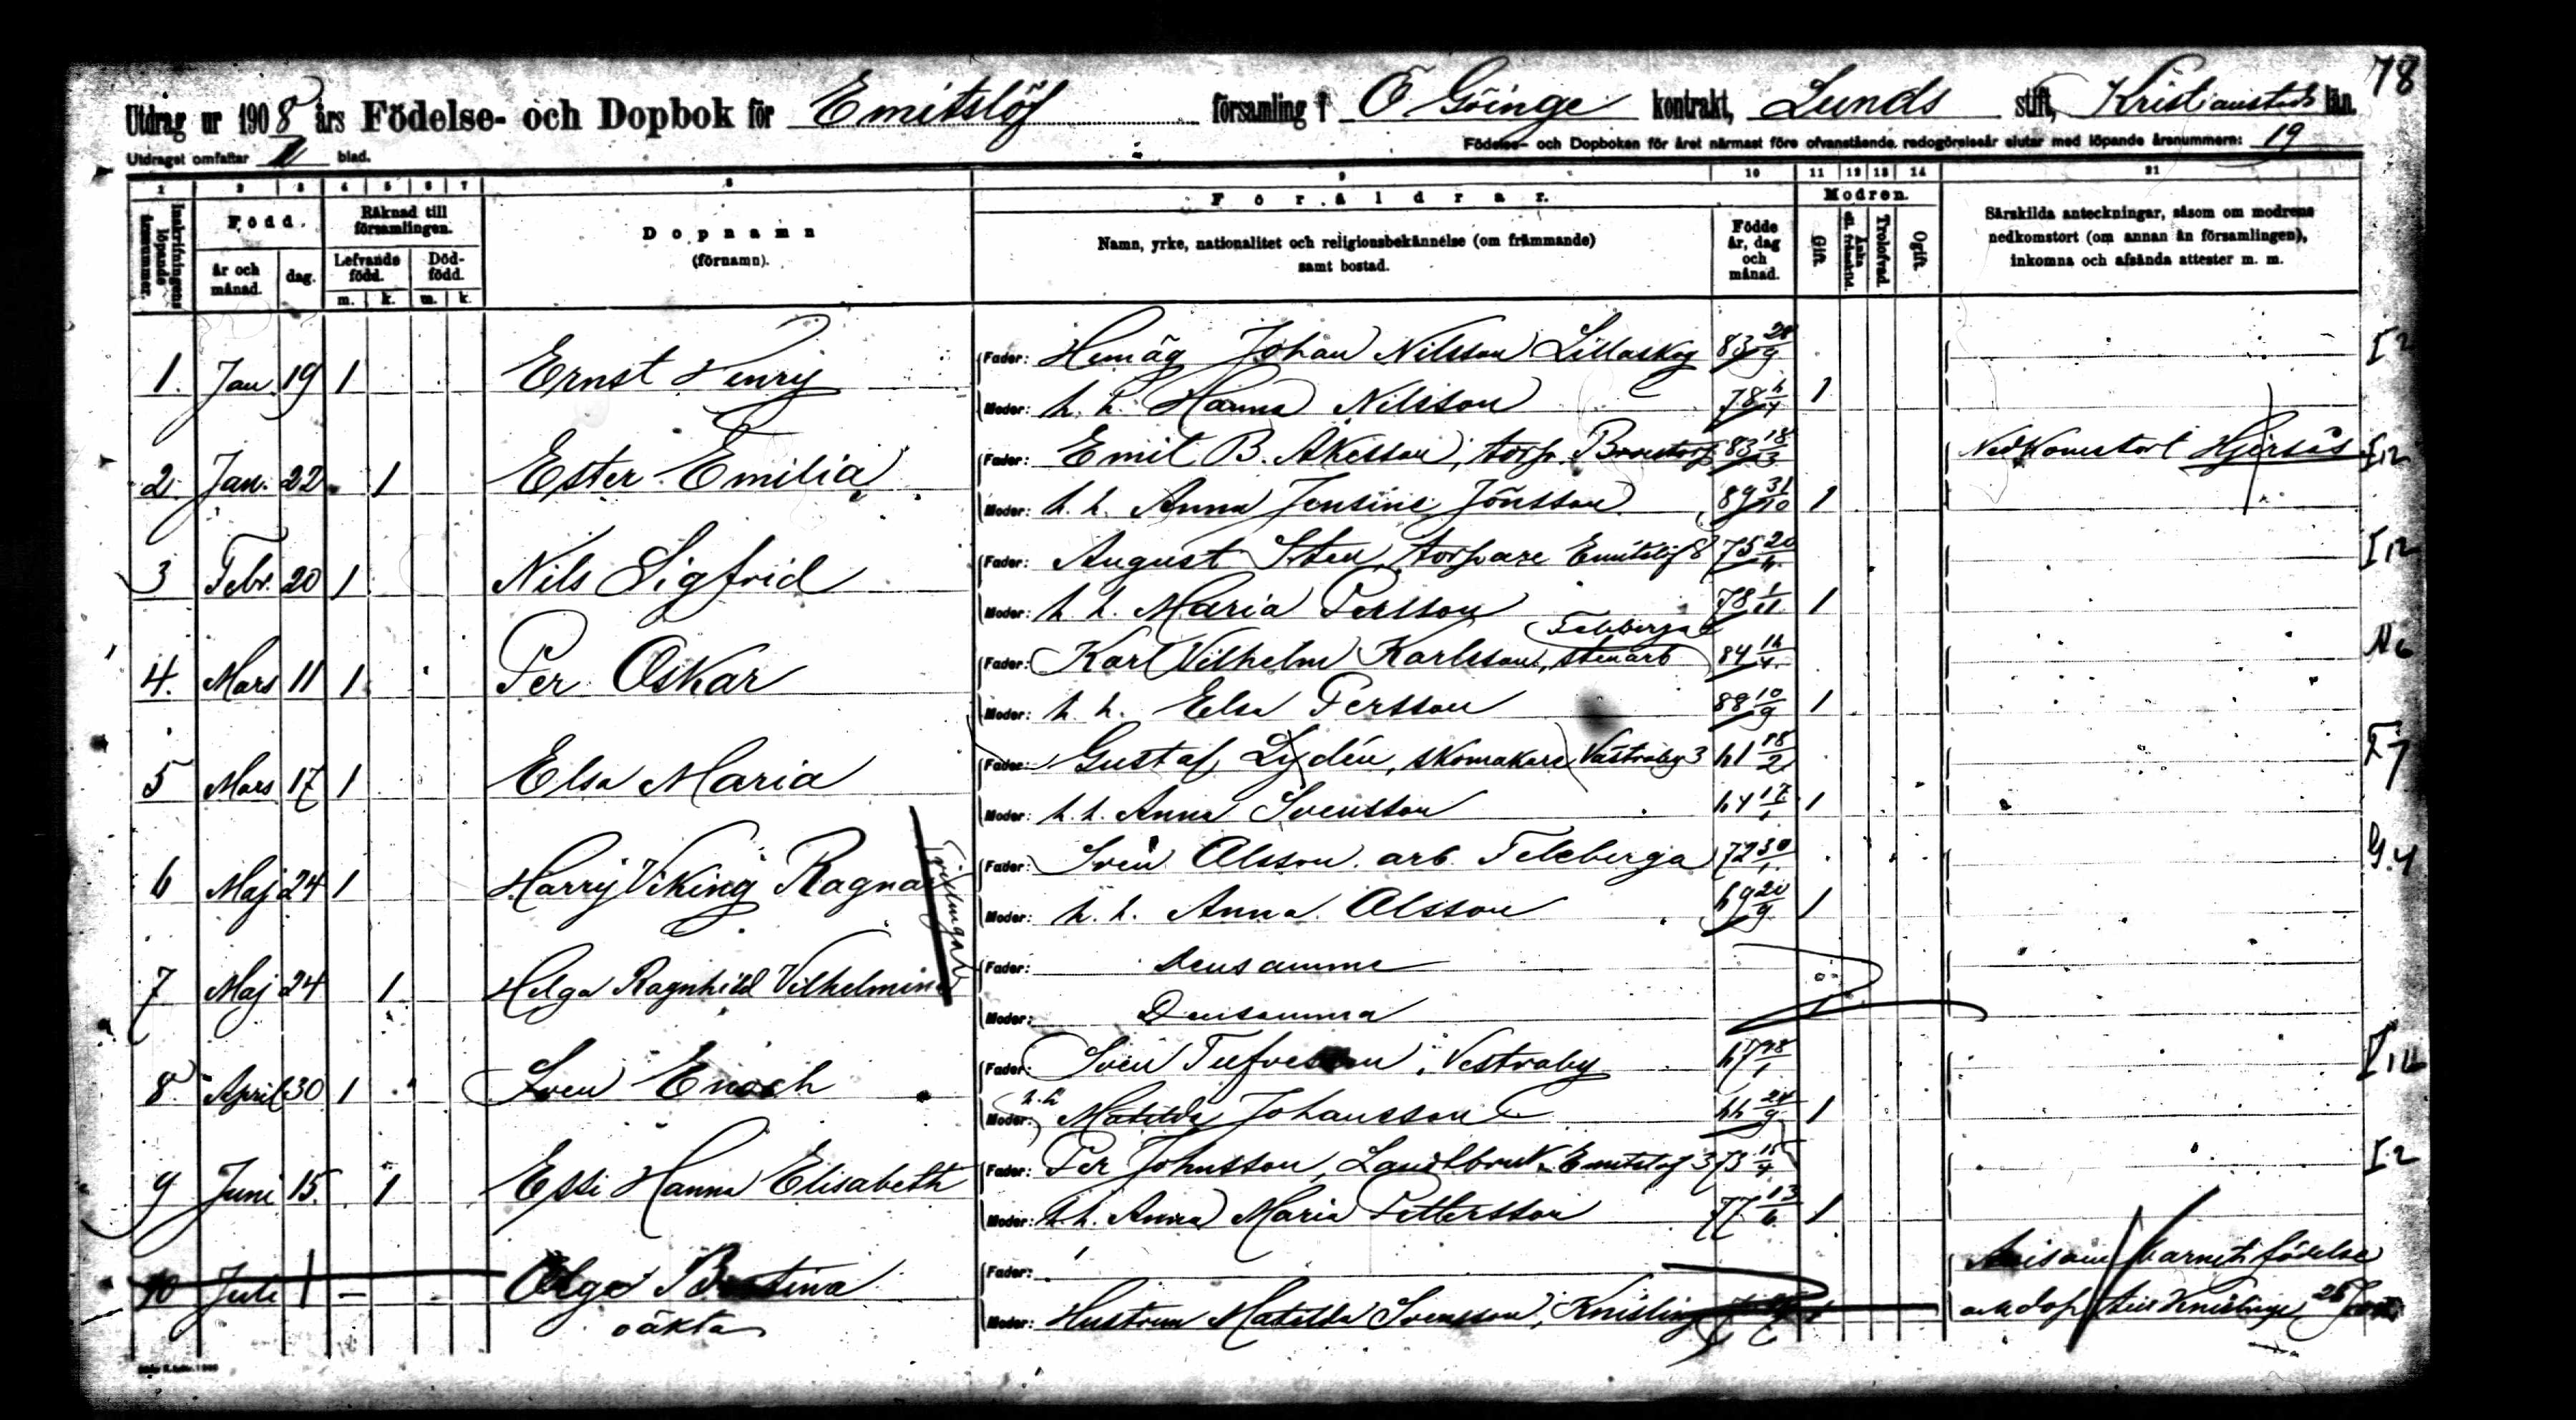 78
Utdrag ur 1908 års Födelse- och Dopbok för Emitslöf församling i Ö Göinge kontrakt, Lunds stift, Kristianstads län.
Utdraget omfattar blad.
Födelse- och Dopboken för året närmast före ofvanstående redogörelseår slutar med löpande årsnummern: 19
1 2 3 4 5 6 7 8 9 10 11 12 13 14 21
Inskrifningens löpande årsnummer.
Född.
år och månad.
dag.
Räknad till församlingen.
Lefvande född.
Död-född.
m. k. m. k.
Dopnamn
(förnamn).
Föräldrar.
Namn, yrke, nationalitet och religionsbekännelse (om främmande)
samt bostad.
Födde år, dag och månad.
Modren.
Gift.
Änka el. frånskild.
Trolofvad.
Ogift.
Särskilda anteckningar, såsom om modrens
nedkomstort (om annan än församlingen),
inkomna och afsända attester m. m.
1. Jan. 19 1 Ernst Henry
Fader: Hemäg Johan Nilsson Lillaskog 83 28/9 I 2
Moder: h. h. Hanna Nilsson 78 1
2. Jan. 22 1 Ester Emilia
Fader: Emil B. Åkesson, torp. 83 18/3 Nedkomstort Hjersås I 12
Moder: h. h. Anna Jensine Jönsson 89 31/10 1
3 Febr. 20 1 Nils Sigfrid
Fader: August Sten, torpare Emitslöf 8 75 I 12
Moder: h. h. Maria Persson 78 1/11 1
4. Mars 11 1 Per Oskar
Feleberga
Fader: Karl Vilhelm Karlsson, stenarb 84 N 6
Moder: h. h. Elsa Persson 88 10/9 1
5 Mars 17 1 Elsa Maria
Fader: Gustaf Lydén, skomakare Västraby 3 61 18/2
Moder: h. h. Anna Svensson 64 17/1 1
6 Maj 24 1 Harry Viking Ragnar
Tvillingar
Fader: Sven Olsson arb. Feleberga 72 30/1 G. 4
Moder: h. h. Anna Olsson 69 20/9 1
7 Maj 24 1 Helga Ragnhild Vilhelmina
Fader: Densamme
Moder: Densamma
8 April 30 1 Sven Enoch
Fader: Sven Tufvesson, Vestraby 67 28/1
Moder: h. h. Matilda Johansson 66 24/9 1
9 Juni 15 1 Essi Hanna Elisabeth
Fader: Per Johnsson, Landtbruk. Emitslöf 3 73 15/4 I 2
Moder: h. h. Anna Maria Pettersson 77 13/6 1
10 Juli 1 – Olga
oäkta
Fader:
Moder: Hustrun Matilda Svensson, Knislinge
Avis om barnets födelse
och dop till Knislinge 25